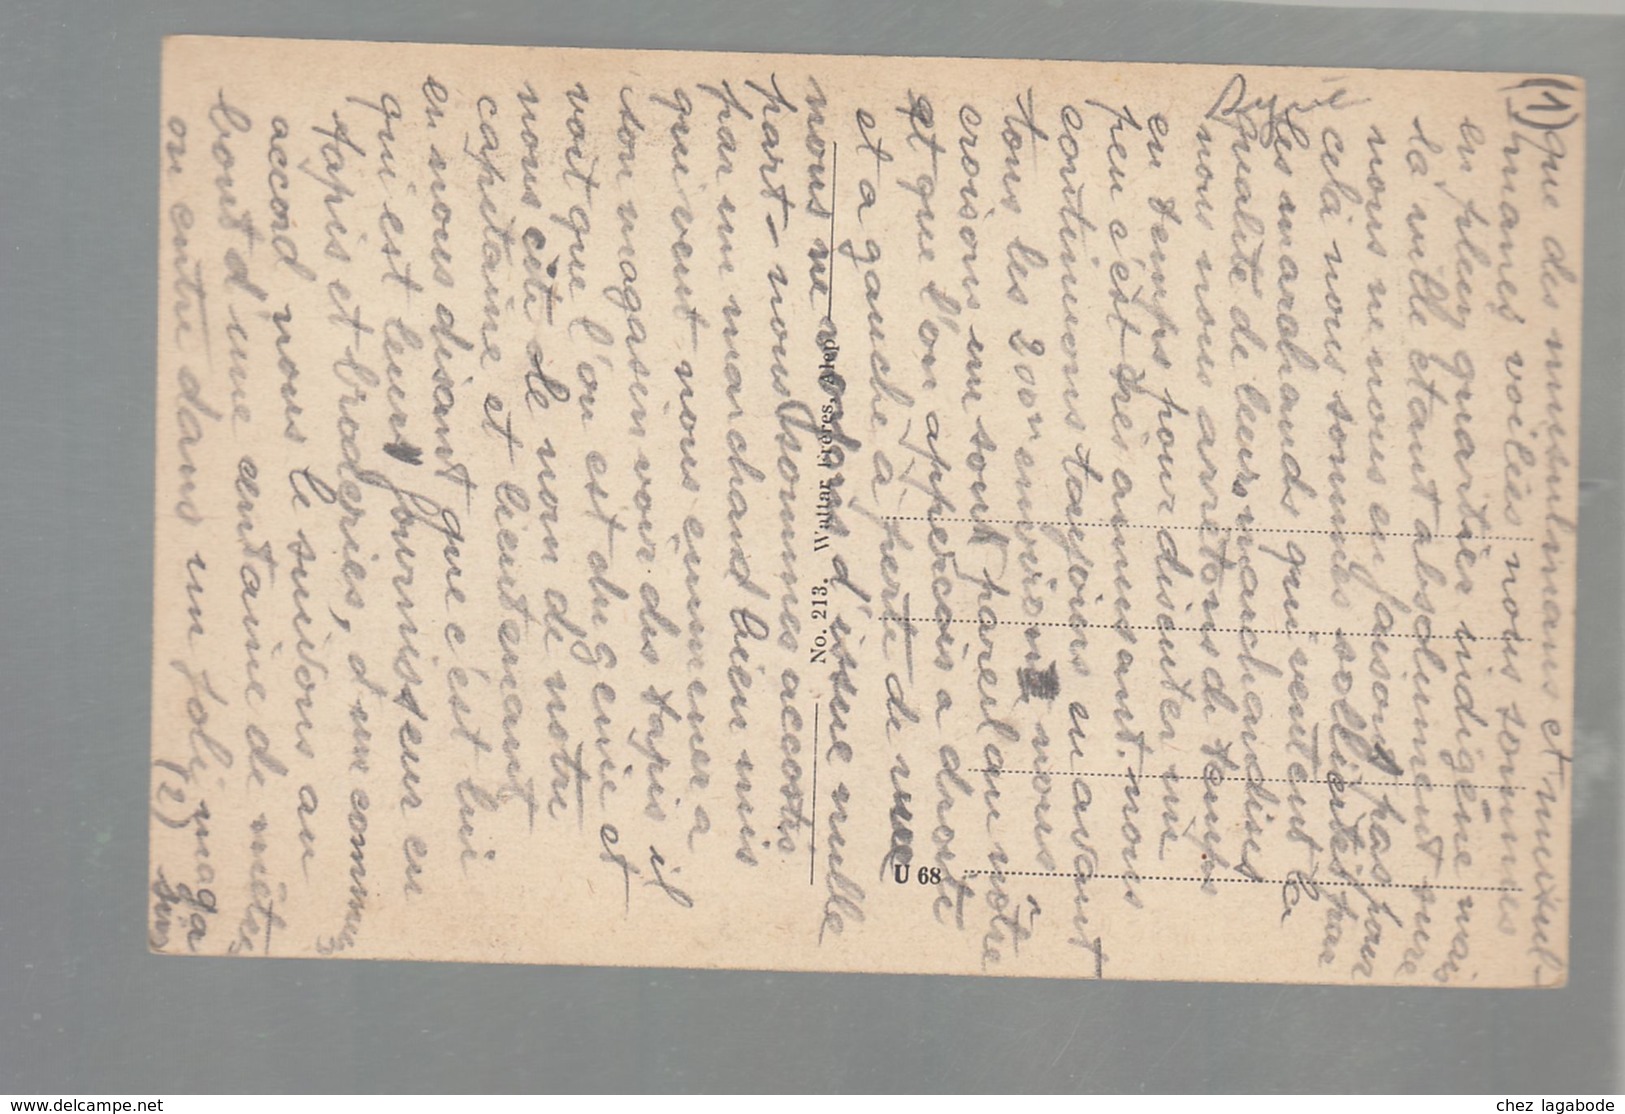 (1) que des musulmans et musul-
manes voilés nous sommes
en plein quartier indigène mais
la ville étant absolument sure
nous ne nous en faisons pas pour
celà nous sommes sollicités par
les marchands qui ventent la
qualité de leurs marchandises
nous nous arretons de temps
en temps pour discuter un
peu c'est très amusant. nous
continuons toujours en avant
tous les 200m environ nous
croisons un souk pareil au nôtre
et que l'on appercois a droite
et a gauche à perte de vue
nous ne voyons d'issue nulle
part - nous sommes accostés
par un marchand bien mis
qui veut nous emmener a
son magasin voir des tapis il
voit que l'on est du genie et
nous cite le nom de notre
capitaine et lieutenant
en nous disant que c'est lui
qui est leur fournisseur en
tapis et broderies, d'un commun
accord nous le suivons au
bout d'une centaine de mètres
on entre dans un joli maga
sin
(2)
No. 213. Wattar Frères, Alep
U 68
chez lagabode